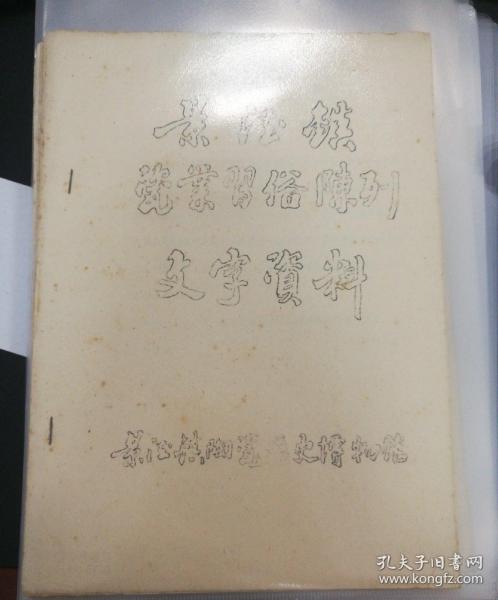 景德鎮
瓷業習俗陳列
文字資料
景德鎮陶瓷歷史博物館
孔夫子旧书网
www.kongfz.com